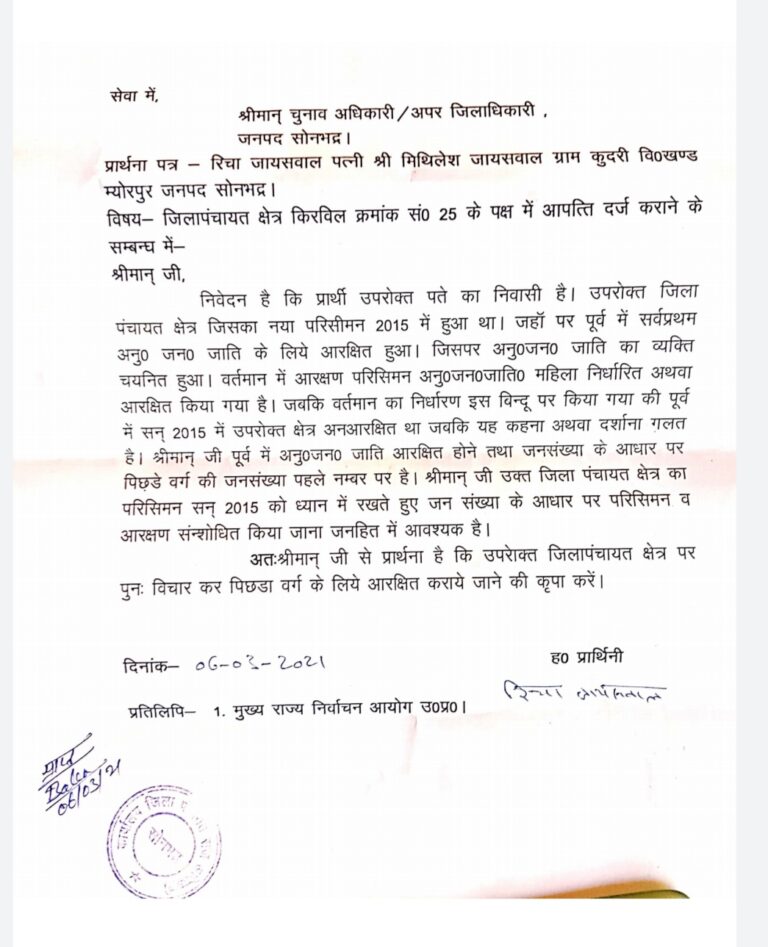 सेवा में,
श्रीमान् चुनाव अधिकारी/अपर जिलाधिकारी ,
जनपद सोनभद्र।
प्रार्थना पत्र – रिचा जायसवाल पत्नी श्री मिथिलेश जायसवाल ग्राम कुदरी वि0खण्ड
म्योरपुर जनपद सोनभद्र।
विषय– जिलापंचायत क्षेत्र किरविल क्रमांक सं0 25 के पक्ष में आपत्ति दर्ज कराने के
सम्बन्घ में–
श्रीमान् जी,
निवेदन है कि प्रार्थी उपरोक्त पते का निवासी है। उपरोक्त जिला
पंचायत क्षेत्र जिसका नया परिसीमन 2015 में हुआ था। जहॉ पर पूर्व में सर्वप्रथम
अनु0 जन0 जाति के लिये आरक्षित हुआ। जिसपर अनु0जन0 जाति का व्यक्ति
चयनित हुआ। वर्तमान में आरक्षण परिसिमन अनु0जन0जाति0 महिला निर्धारित अथवा
आरक्षित किया गया है। जबकि वर्तमान का निर्धारण इस विन्दू पर किया गया की पूर्व
में सन् 2015 में उपरोक्त क्षेत्र अनआरक्षित था जबकि यह कहना अथवा दर्शाना ग़लत
है। श्रीमान् जी पूर्व में अनु0जन0 जाति आरक्षित होने तथा जनसंख्या के आधार पर
पिछ़डे वर्ग की जनसंख्या पहले नम्बर पर है। श्रीमान् जी उक्त जिला पंचायत क्षेत्र का
परिसिमन सन् 2015 को ध्यान में रखते हुए जन संख्या के आधार पर परिसिमन व
आरक्षण संन्शोधित किया जाना जनहित में आवश्यक है।
अतःश्रीमान् जी से प्रार्थना है कि उपरोक्त जिलापंचायत क्षेत्र पर
पुनः विचार कर पिछडा वर्ग के लिये आरक्षित कराये जाने की कृपा करें।
दिनांक– 06-03-2021
ह0 प्रार्थिनी
रिचा जायसवाल
प्रतिलिपि– 1. मुख्य राज्य निर्वाचन आयोग उ0प्र0।
06/03/21
कार्यालय जिला
सोनभद्र